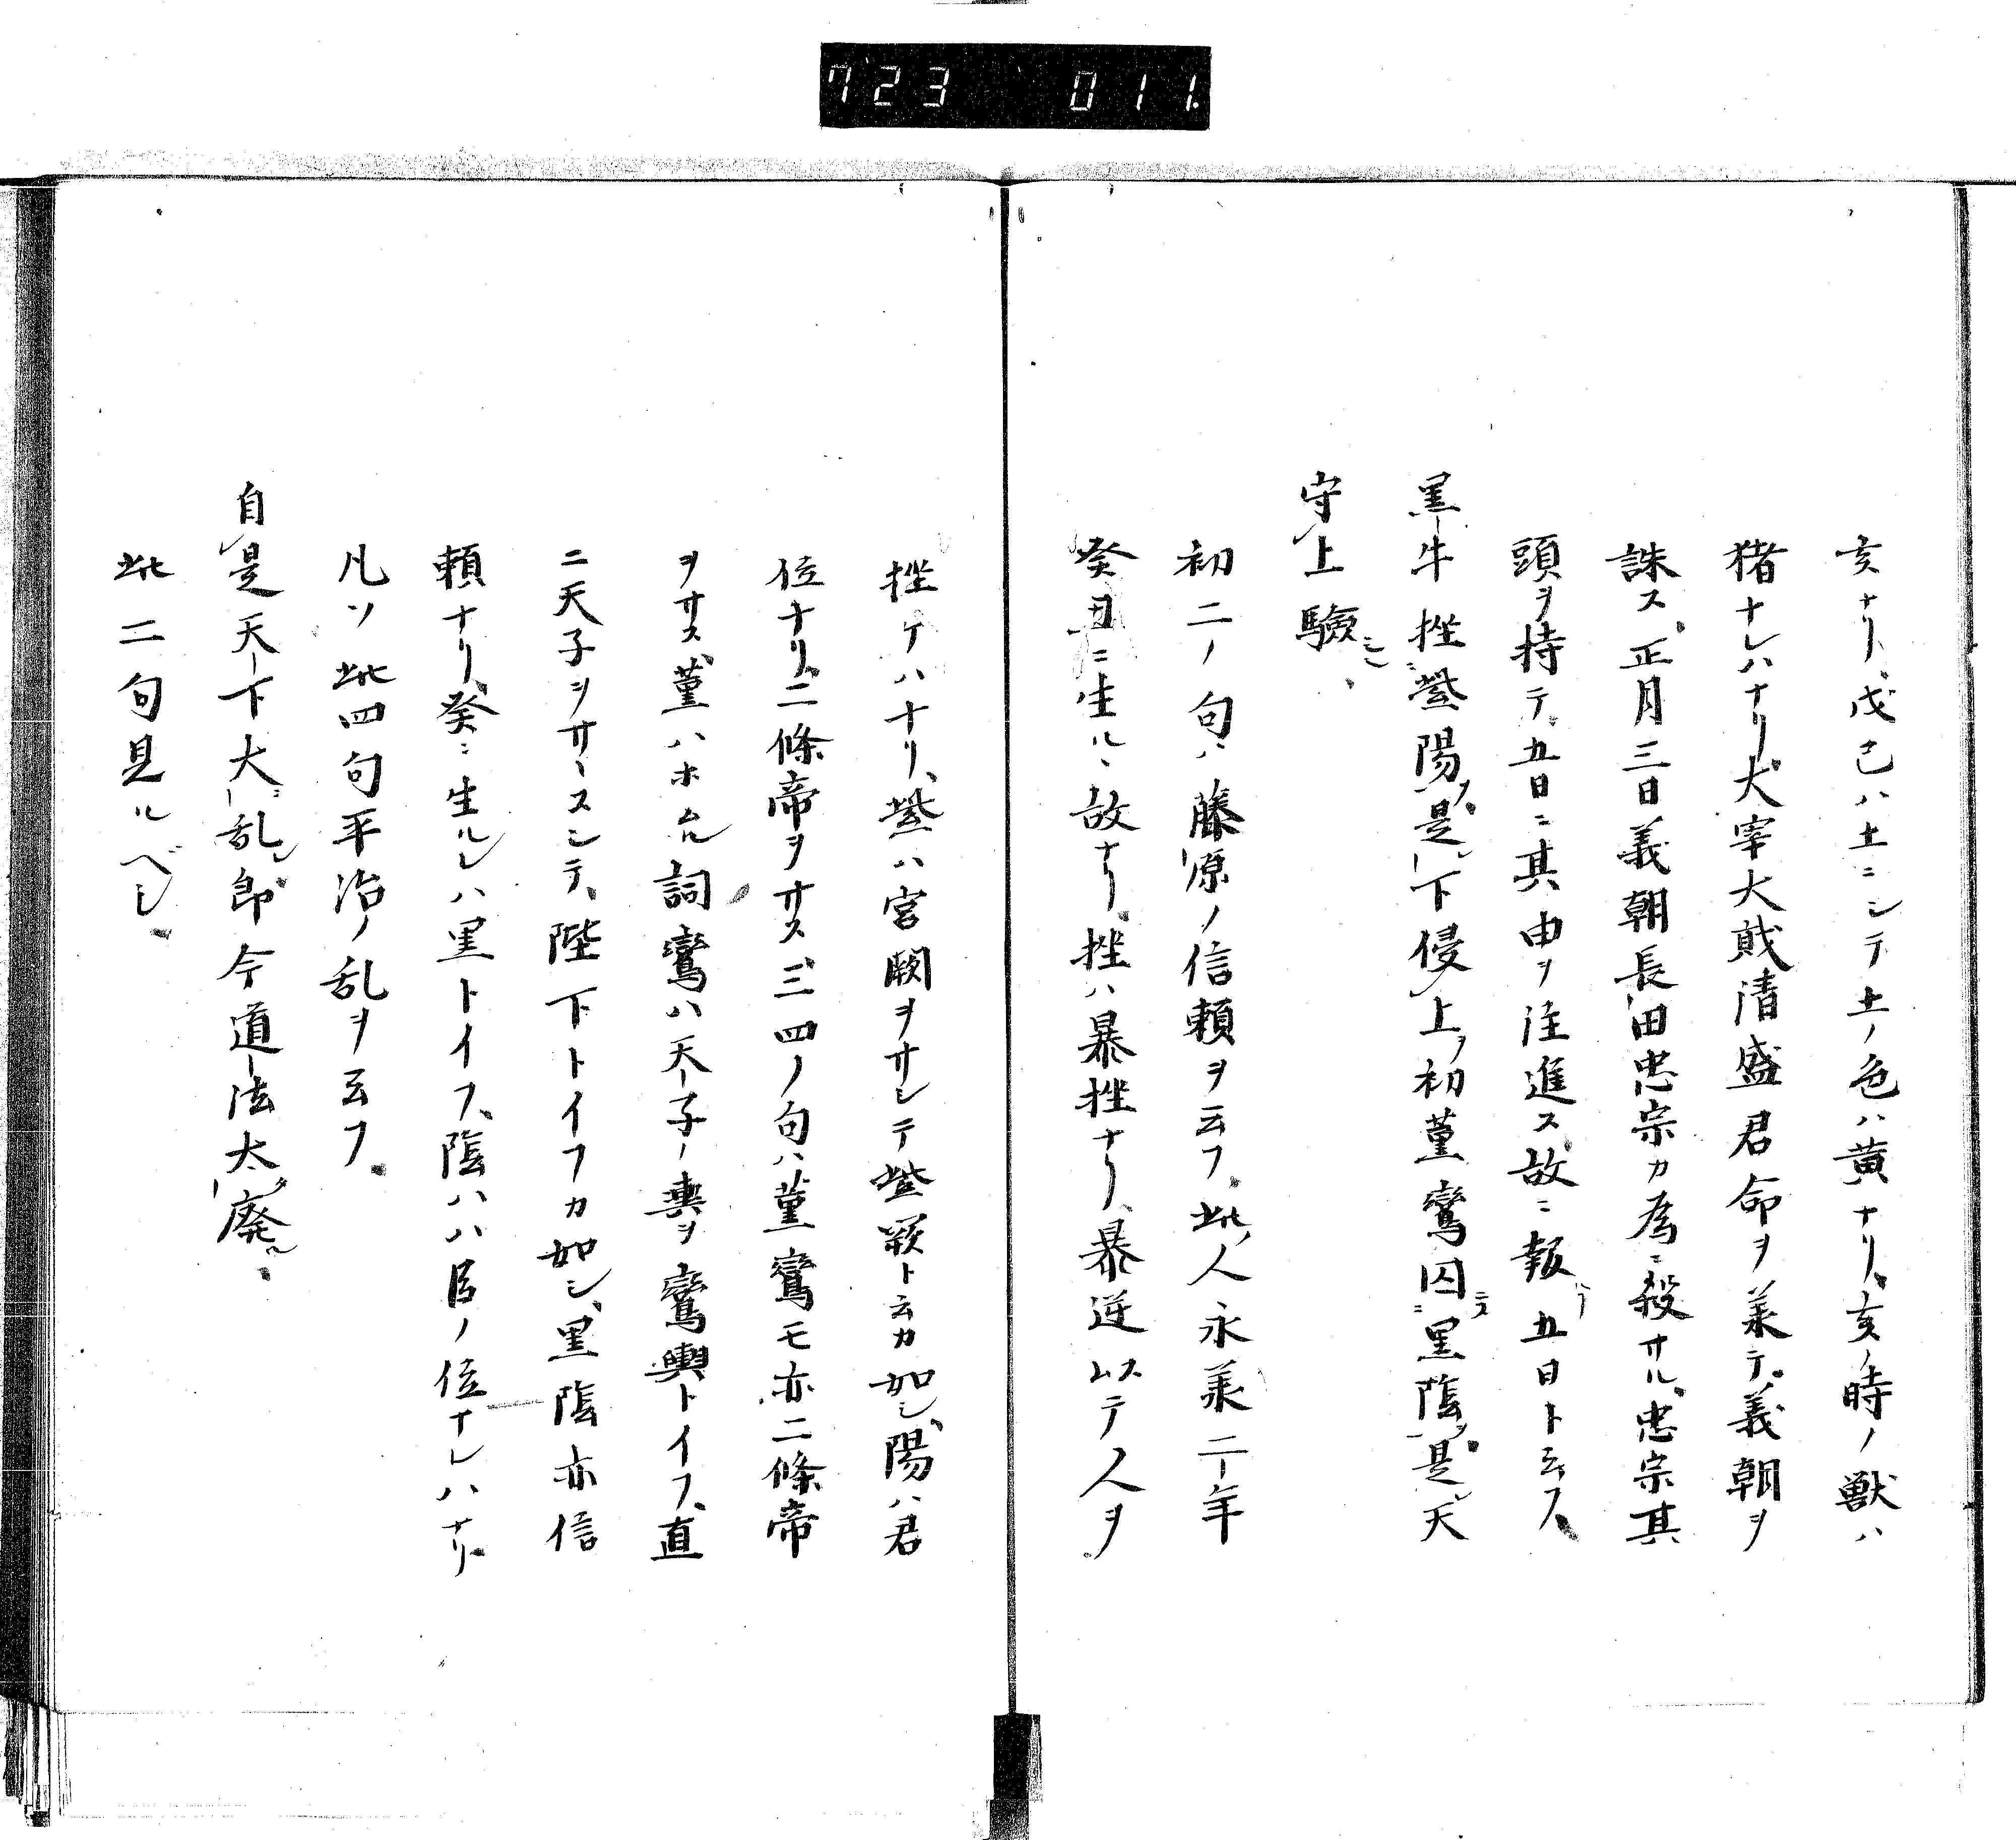 723 011.
亥ナリ、戊己ハ土ニシテ土ノ色ハ黄ナリ、亥ノ時ノ獣ハ
猪ナレハナリ、太宰大貮清盛君命ヲ羕テ、義朝ヲ
誅ス、正月三日義朝長田忠宗カ為ニ殺サル、忠宗其
頭ヲ持テ、五日ニ其由ヲ注進ス、故ニ報五日ト云フ、
黒牛挫紫陽、是下侵上、初菫鸞囚黒陰、是天
守上驗、
初二ノ句ハ藤原ノ信頼ヲ云フ、此人永羕二年
癸丑ニ生ルヽ故ナリ、挫ハ暴挫ナリ、暴逆以テ人ヲ
挫ケハナリ、紫ハ宮闕ヲサシテ紫闕ト云カ如シ、陽ハ君
位ナリ、二條帝ヲサス、三四ノ句ハ菫鸞モ亦二條帝
ヲサス、菫ハホムル詞鸞ハ天子ノ輿ヲ鸞輿トイフ、直
ニ天子ヲサヽスシテ、陛下トイフカ如シ、黒陰亦信
頼ナリ、癸ニ生ルレハ黒トイフ、陰ハハ臣ノ位ナレハナリ、
凡ソ此四句平治ノ乱ヲ云フ、
自是天下大乱、郎今道法太廃、
此二句見ルベシ、